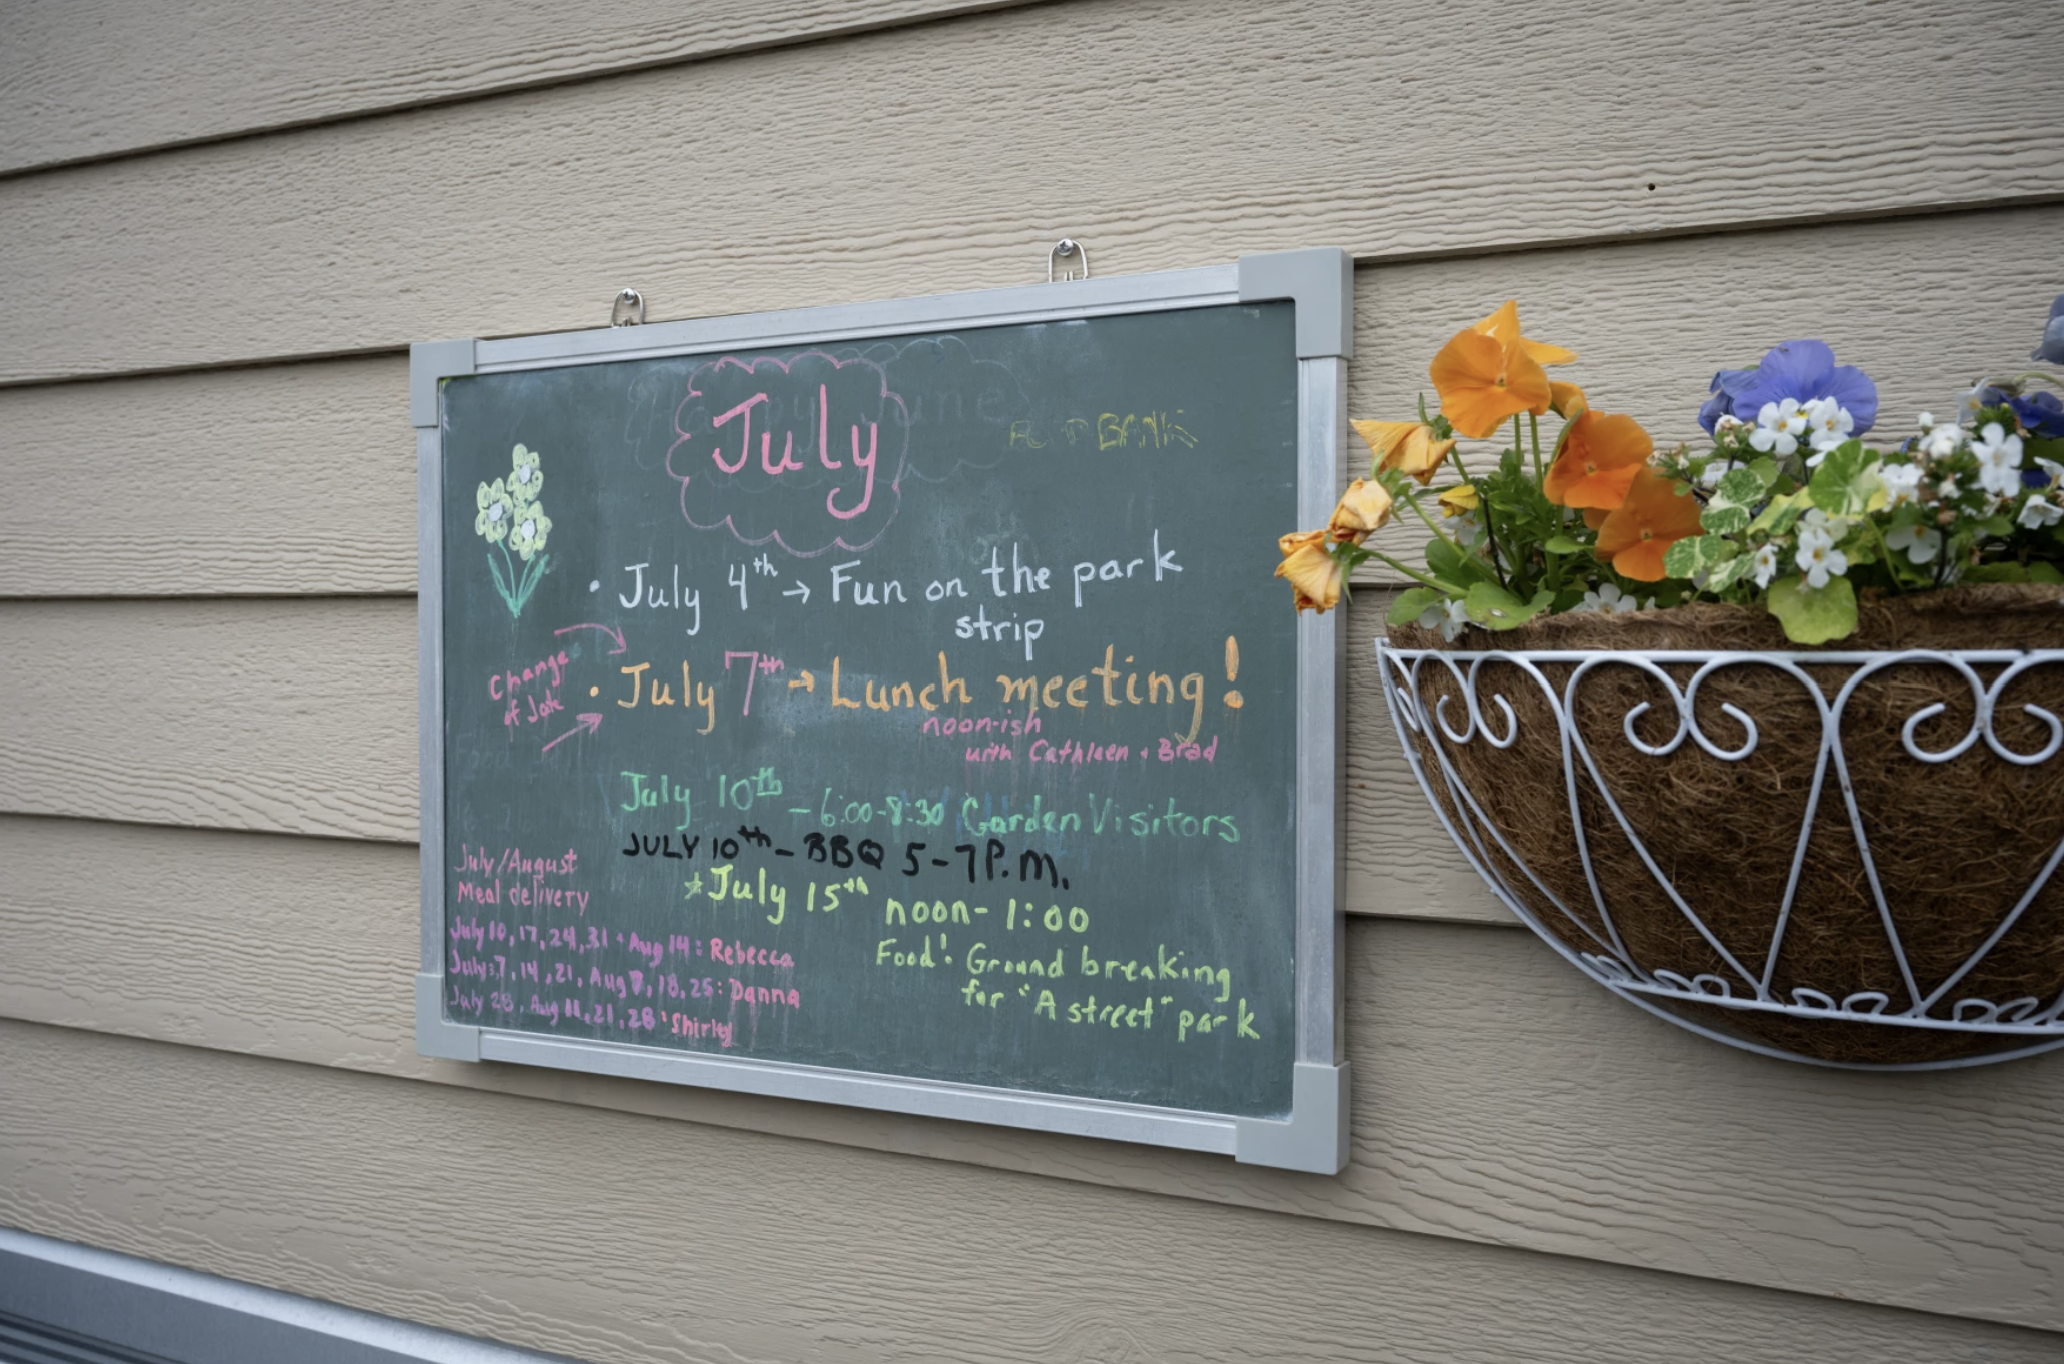 July
BANK
• July 4th → Fun on the park
strip
Change
of date
• July 7th → Lunch meeting!
noon-ish
with Cathleen + Brad
July 10th - 6:00-8:30 Garden Visitors
JULY 10th - BBQ 5-7P.M.
☆July 15th noon- 1:00
Food! Ground breaking
for "A street" park
July/August
Meal delivery
July 10, 17, 24, 31 + Aug 14: Rebecca
July 7, 14, 21, Aug 18, 25: Danna
July 28, Aug 11, 21, 28: Shirley